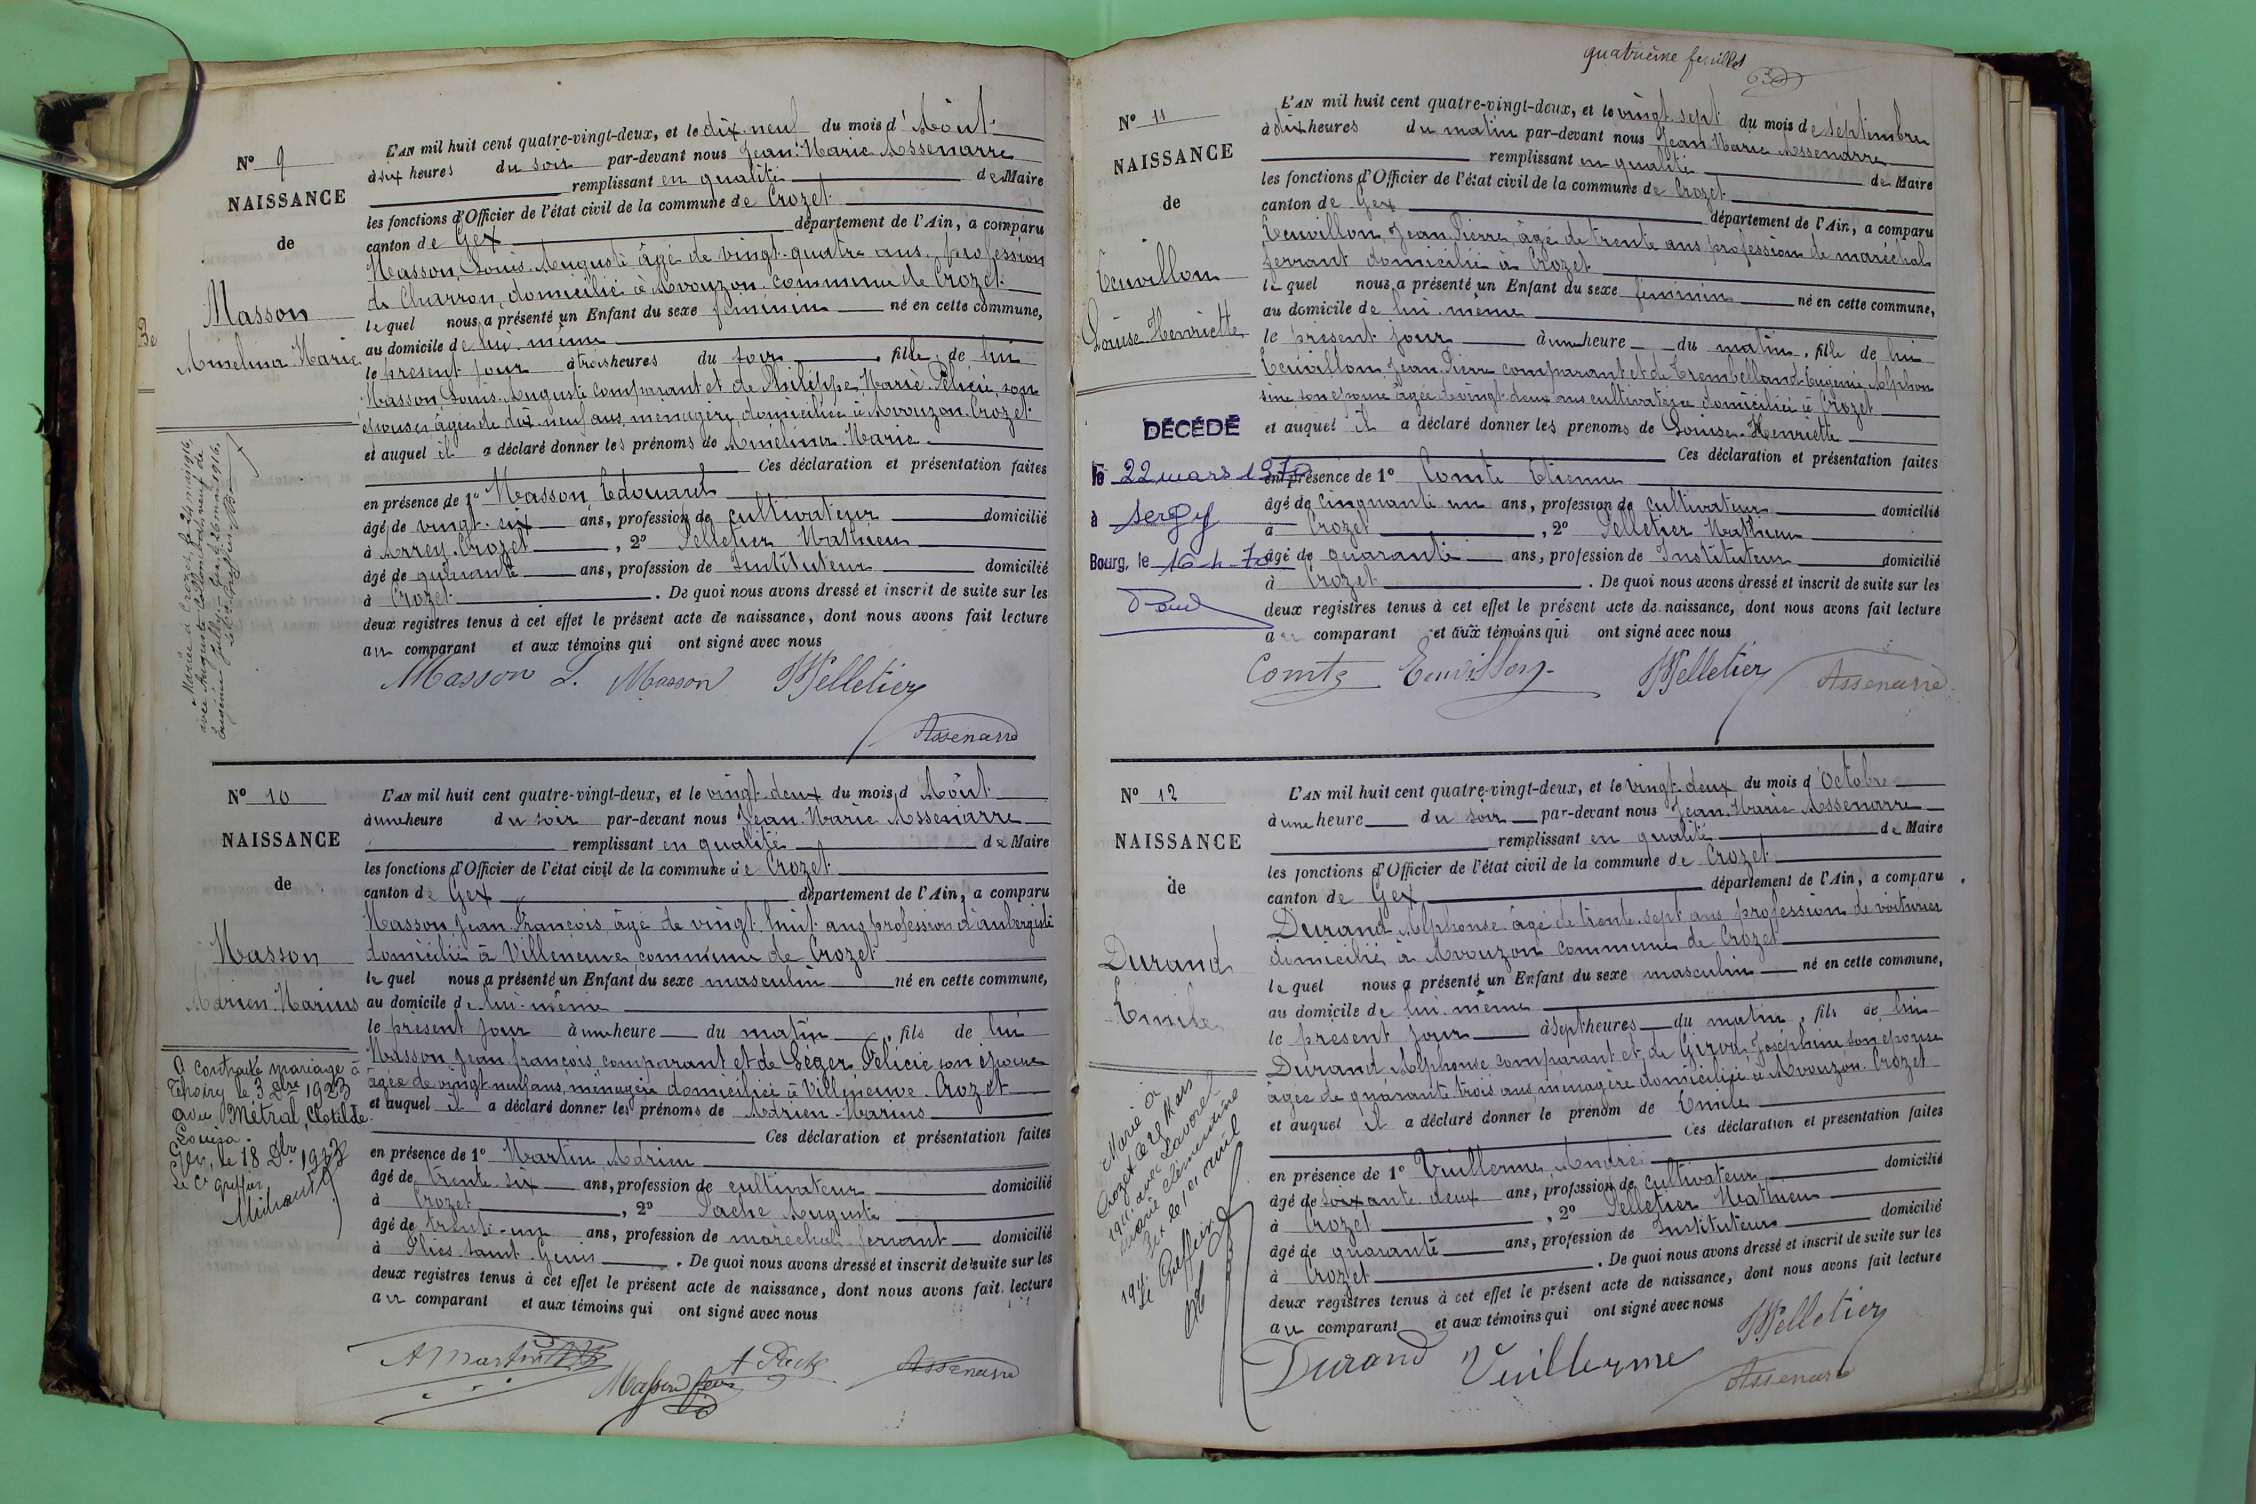 N° 9
NAISSANCE
de
Masson
Amelina Marie
L'AN mil huit cent quatre-vingt-deux, et le dix-neuf du mois d'Août
à six heures du soir par-devant nous Jean-Marie Assenarre
remplissant en qualité de Maire
les fonctions d'Officier de l'état civil de la commune de Crozet
canton de Gex département de l'Ain, a comparu
Masson, Louis-Auguste âgé de vingt-quatre ans, profession
de Charron, domicilié à Avouzon commune de Crozet
lequel nous a présenté un Enfant du sexe féminin né en cette commune,
au domicile de lui-même
le présent jour à trois heures du soir, fille de lui
Masson Louis-Auguste comparant et de Philippe Marie-Félicie, son
épouse, âgée de dix-neuf ans, ménagère, domiciliée à Avouzon-Crozet
et auquel il a déclaré donner les prénoms de Amélina-Marie
Ces déclaration et présentation faites
en présence de 1° Masson Edouard
âgé de vingt-six ans, profession de cultivateur domicilié
à Arrey-Crozet, 2° Pelletier Mathieu
âgé de quarante ans, profession de Instituteur domicilié
à Crozet. De quoi nous avons dressé et inscrit de suite sur les
deux registres tenus à cet effet le présent acte de naissance, dont nous avons fait lecture
au comparant et aux témoins qui ont signé avec nous
Masson L. Masson Pelletier
Assenarre
Mariée à Crozet, le 24 mai 1916,
avec Auguste
N° 10
NAISSANCE
de
Masson
Adrien-Marius
A contracté mariage à
Thoiry le 3 Dbre 1923
avec Métral, Clotilde
Louisa.
Gex, le 18 Dbre 1923
Le Cs Greffier
L'AN mil huit cent quatre-vingt-deux, et le vingt-deux du mois d'Août
à une heure du soir par-devant nous Jean-Marie Assenarre
remplissant en qualité de Maire
les fonctions d'Officier de l'état civil de la commune de Crozet
canton de Gex département de l'Ain, a comparu
Masson Jean-François, âgé de vingt-huit ans profession d'aubergiste
domicilié à Villeneuve, commune de Crozet
lequel nous a présenté un Enfant du sexe masculin né en cette commune,
au domicile de lui-même
le présent jour à une heure du matin, fils de lui
Masson Jean François, comparant et de Léger Félicie son épouse
âgée de vingt-neuf ans, ménagère domiciliée à Villeneuve-Crozet
et auquel il a déclaré donner les prénoms de Adrien-Marius
Ces déclaration et présentation faites
en présence de 1° Martin Adrien
âgé de trente-six ans, profession de cultivateur domicilié
à Crozet, 2° Pache Auguste
âgé de trente-un ans, profession de maréchal-ferrant domicilié
à Flies-Saint-Genis. De quoi nous avons dressé et inscrit de suite sur les
deux registres tenus à cet effet le présent acte de naissance, dont nous avons fait lecture
au comparant et aux témoins qui ont signé avec nous
A Martin
Masson A Pache Assenarre
quatrième feuillet
N° 11
NAISSANCE
de
Louise-Henriette
DÉCÉDÉ
le 22 mars 1970
à Sergy
Bourg, le 16-4-70
L'AN mil huit cent quatre-vingt-deux, et le vingt-sept du mois de septembre
à dix heures du matin par-devant nous Jean-Marie Assenarre
remplissant en qualité de Maire
les fonctions d'Officier de l'état civil de la commune de Crozet
canton de Gex département de l'Ain, a comparu
Jean-Pierre, âgé de trente ans profession de maréchal
ferrant domicilié à Crozet
lequel nous a présenté un Enfant du sexe féminin né en cette commune,
au domicile de lui-même
le présent jour à une heure du matin, fille de lui
Jean-Pierre comparant et de Trembelland Eugénie Alphon
sine, son épouse âgée de vingt-deux ans cultivatrice domiciliée à Crozet
et auquel il a déclaré donner les prenoms de Louise-Henriette
Ces déclaration et présentation faites
en présence de 1° Comte Etienne
âgé de cinquante un ans, profession de cultivateur domicilié
à Crozet, 2° Pelletier Mathieu
âgé de quarante ans, profession de Instituteur domicilié
à Crozet. De quoi nous avons dressé et inscrit de suite sur les
deux registres tenus à cet effet le présent acte de naissance, dont nous avons fait lecture
au comparant et aux témoins qui ont signé avec nous
Comte Pelletier Assenarre
N° 12
NAISSANCE
de
Durand
Emile
Marié à
Crozet le 28 Mars
1914 avec Lavorel
Marie Clémentine
Gex le 1er avril
1914.
Le Greffier
L'AN mil huit cent quatre-vingt-deux, et le vingt-deux du mois d'Octobre
à une heure du soir par-devant nous Jean-Marie Assenarre
remplissant en qualité de Maire
les fonctions d'Officier de l'état civil de la commune de Crozet
canton de Gex département de l'Ain, a comparu
Durand Alphonse âgé de trente-sept ans profession de voiturier
domicilié à Avouzon commune de Crozet
lequel nous a présenté un Enfant du sexe masculin né en cette commune,
au domicile de lui-même
le présent jour à sept heures du matin, fils de lui
Durand Alphonse comparant et de Girod Joséphine son épouse
âgée de quarante-trois ans ménagère domiciliée à Avouzon-Crozet
et auquel il a déclaré donner le prénom de Emile
Ces déclaration et présentation faites
en présence de 1° Vuillerme André
âgé de soixante-deux ans, profession de cultivateur domicilié
à Crozet, 2° Pelletier Mathieu
âgé de quarante ans, profession de Instituteur domicilié
à Crozet. De quoi nous avons dressé et inscrit de suite sur les
deux registres tenus à cet effet le présent acte de naissance, dont nous avons fait lecture
au comparant et aux témoins qui ont signé avec nous
Durand Vuillerme Pelletier
Assenarre